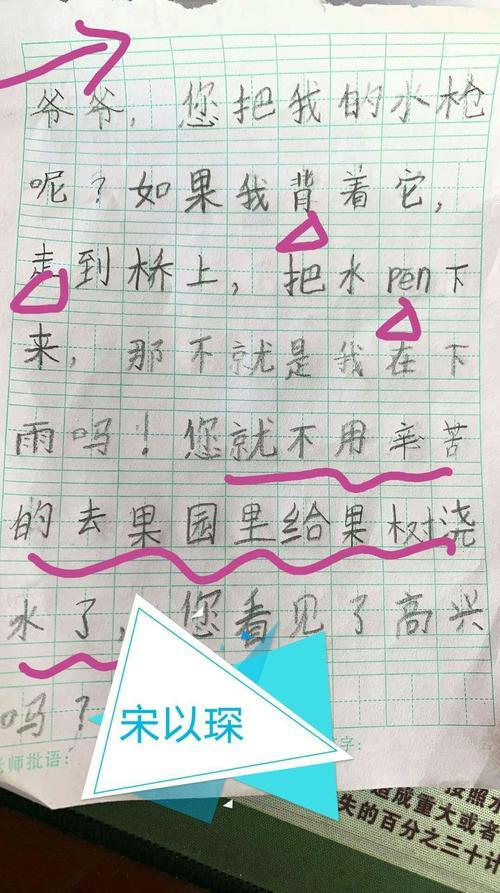 爷爷，您把我的水枪
呢？如果我背着它，
走到桥上，把水pen下
来，那不就是我在下
雨吗！您就不用辛苦
的去果园里给果树浇
水了，您看见了高兴
吗？
宋以琛
师批语：
字：
按照
造成重大或者
失的百分之三十计